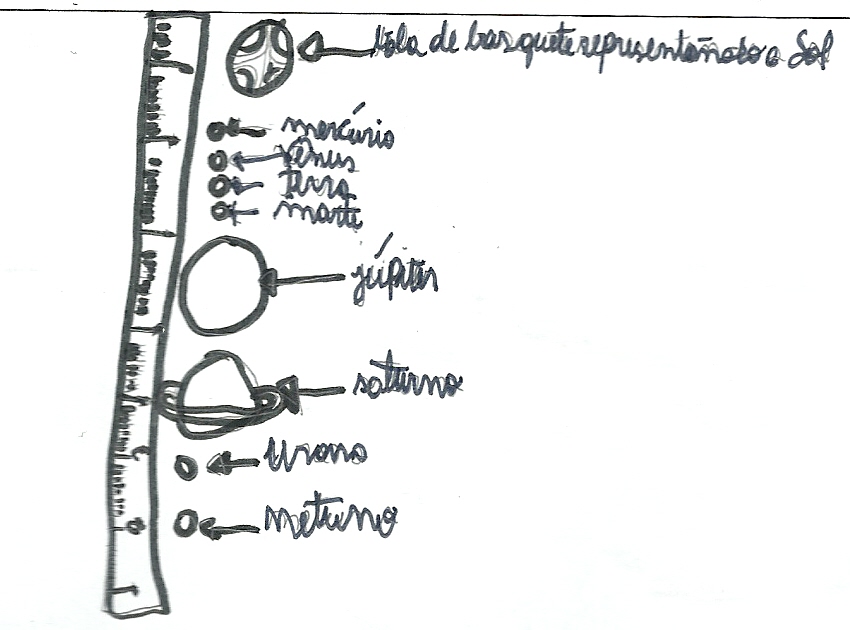 bola de basquete representando o Sol
mercúrio
Vênus
terra
marte
júpiter
saturno
Urano
netuno